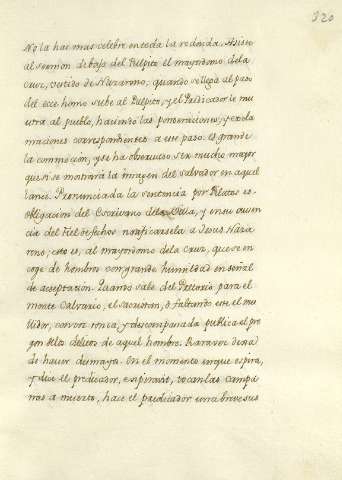 320
No la hai mas celebre en toda la redonda. Asiste
al sermon debajo del Pulpito el mayordomo dela
Cruz, vestido de Nazareno: quando se llega al paso
del ecce homo sube al Pulpito, y el Predicador le mu
estra al pueblo, haciendo las ponderaciones, y excla
maciones correspondientes a este paso. Es grande
la conmocion, y se ha observado ser mucho mayor
que si se mostrara la imagen del Salvador en aquel
lance. Pronunciada la sentencia por Pilatos es
obligacion del Escrivano dela Villa, y en su ausen
cia del Fiel de fechos notificarsela a Jesus Naza
reno, esto es, al mayordomo dela Cruz, que se en
coge de hombros con grande humildad en señal
de aceptacion. Quando sale del Pretorio para el
monte Calvario, el sacristan, ò faltando este el mu
llidor, con voz ronca, y descompasada publica el pre
gon delos delitos de aquel hombre. Rara vez dexa
de haver desmayos. En el momento en que espira,
y dice el predicador, expiravit, tocan las campa
nas a muerto, hace el predicador una breve sus